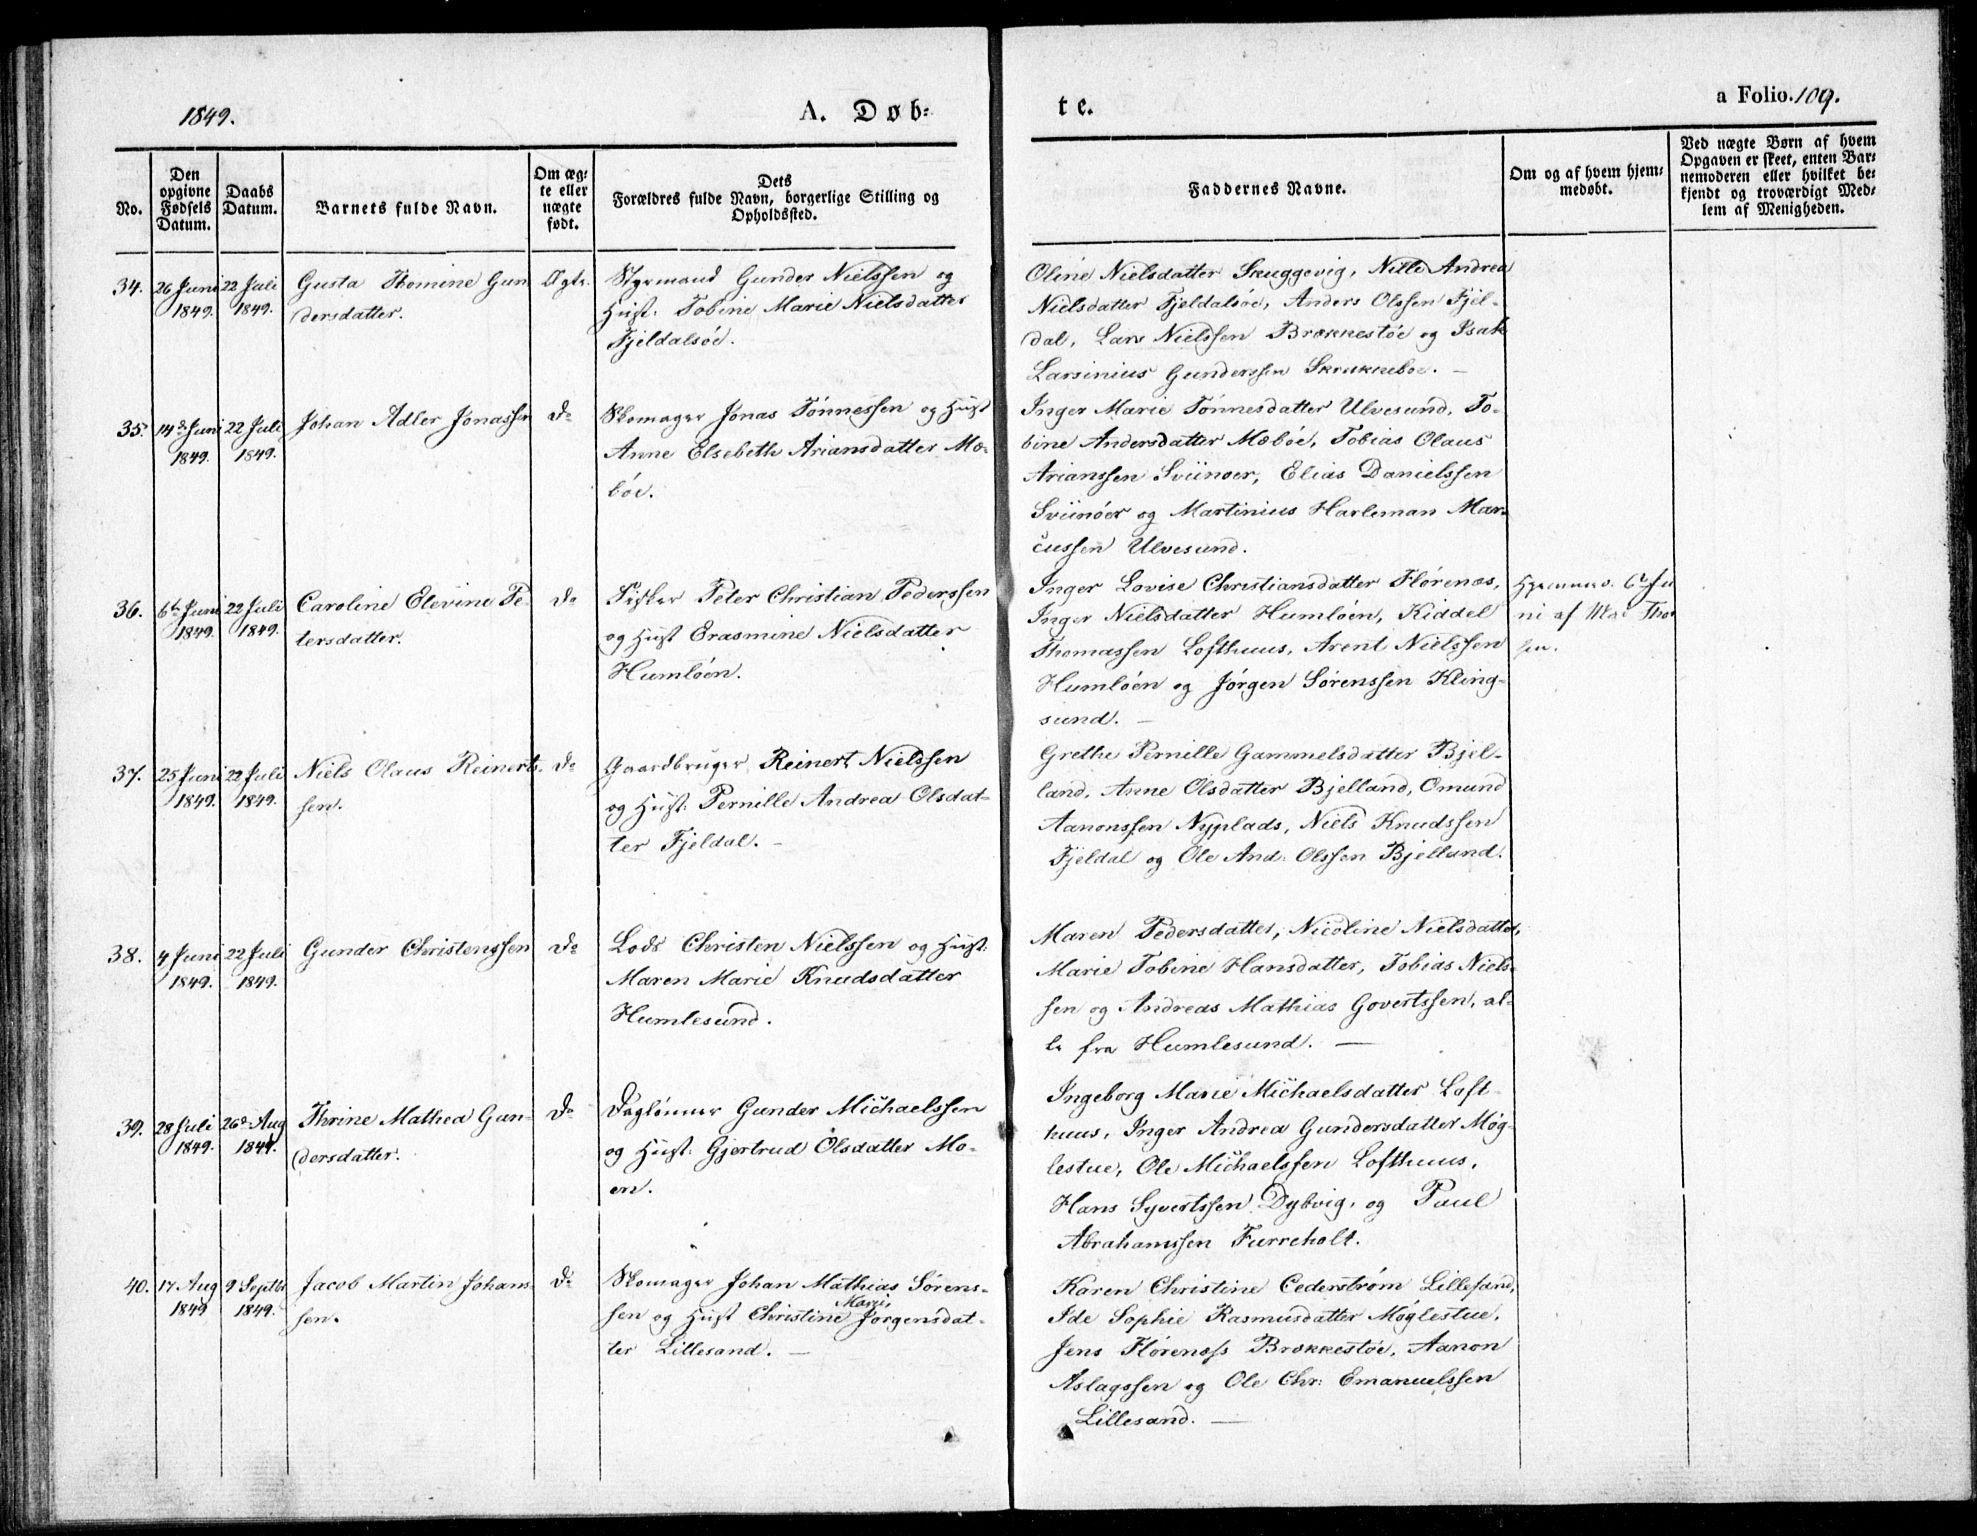 1849.
A. Døb-
te.
a Folio. 109.
No.
Den opgivne Fødsels Datum.
Daabs Datum.
Barnets fulde Navn.
Om æg-te eller nægte født.
Dets Forældres fulde Navn, borgerlige Stilling og Opholdssted.
Faddernes Navne.
Om og af hvem hjem-medøbt.
Ved nægte Børn af hvem Opgaven er skeet, enten Bar-nemoderen eller hvilket be-kjendt og troværdigt Med-lem af Menigheden.
34. 26 Juni 22 Juli Gusta Thomine Gun Ægte. Styrmand Gunder Nielssen og
1849. 1849. dersdatter. Hust: Tobine Marie Nielsdatter
Fjeldalsöe.
Oline Nielsdatter Skuggevig, Nille Andrea
Nielsdatter Fjeldalsöe, Anders Olssen Fjel-
dal, Lars Nielssen Brækkestöe og Isak
Larsinius Gunderssen Skrukkeboe. —
35. 14de Juni 22 Juli Johan Adler Jonassen Do Skomager Jonas Tönnessen og Hust
1849. 1849. Anne Elsebeth Ariansdatter Mæ-
böe.
Inger Marie Tönnesdatter Ulvesund, To-
bine Andersdatter Mæböe, Tobias Olaus
Arianssen Sviinöer, Elias Danielssen
Sviinöer og Martinius Harleman Mar-
cussen Ulvesund.
36. 6te Juni 22 Juli Caroline Elevine Pe- Do Fisker Peter Christian Pederssen
1849. 1849. tersdatter. og Hust Erasmine Nielsdatter
Humlöen.
Inger Lovise Christiansdatter Hörenæs,
Inger Nielsdatter Humlöen, Kiddel
Thomassen Lofthuus, Arent Nielssen
Humlöen og Jörgen Sörenssen Kling-
sund. —
Hjemmed. 6te Ju
ni af Mad Thor
sen.
37. 25 Juni 22 Juli Niels Olaus Reinerts- Do Gaardbruger Reinert Nielssen
1849. 1849. sen. og Hust: Pernille Andrea Olsdat-
ter Fjeldal. -
Grethe Pernille Gammelsdatter Bjel-
land, Anne Olsdatter Bjelland, Omund
Aanonssen Nyplads, Niels Knudssen
Fjeldal og Ole And: Olssen Bjelland.
38. 4 Juni 22 Juli Gunder Christenssen Do Lods Christen Nielssen og Hust:
1849. 1849. Maren Marie Knudsdatter
Humlesund.
Maren Pedersdatter, Nicoline Nielsdatter,
Marie Tobine Hansdatter, Tobias Niels-
sen og Andreas Mathias Govertssen, al-
le fra Humlesund. —
39. 28 Juli 26de Aug Thrine Mathea Gun- Do Daglönner Gunder Michaelssen
1849. 1849. dersdatter. og Hust: Gjertrud Olsdatter Mo-
en.
Ingeborg Marie Michaelsdatter Loft-
huus, Inger Andrea Gundersdatter Møg-
lestue, Ole Michaelssen Lofthuus,
Hans Syvertssen Dybvig, og Paul
Abrahamssen Furreholt.
40. 17 Aug 9 Septbr Jacob Martin Johans- Do Skomager Johan Mathias Sörens-
1849 1849. sen. sen og Hust Christine Marie Jörgensdat-
ter Lillesand. —
Karen Christine Cederström Lillesand,
Ide Sophie Rasmusdatter Møglestue,
Jens Hörenæss Brækkestöe, Aanon
Aslagssen og Ole Chr: Emanuelssen
Lillesand. —